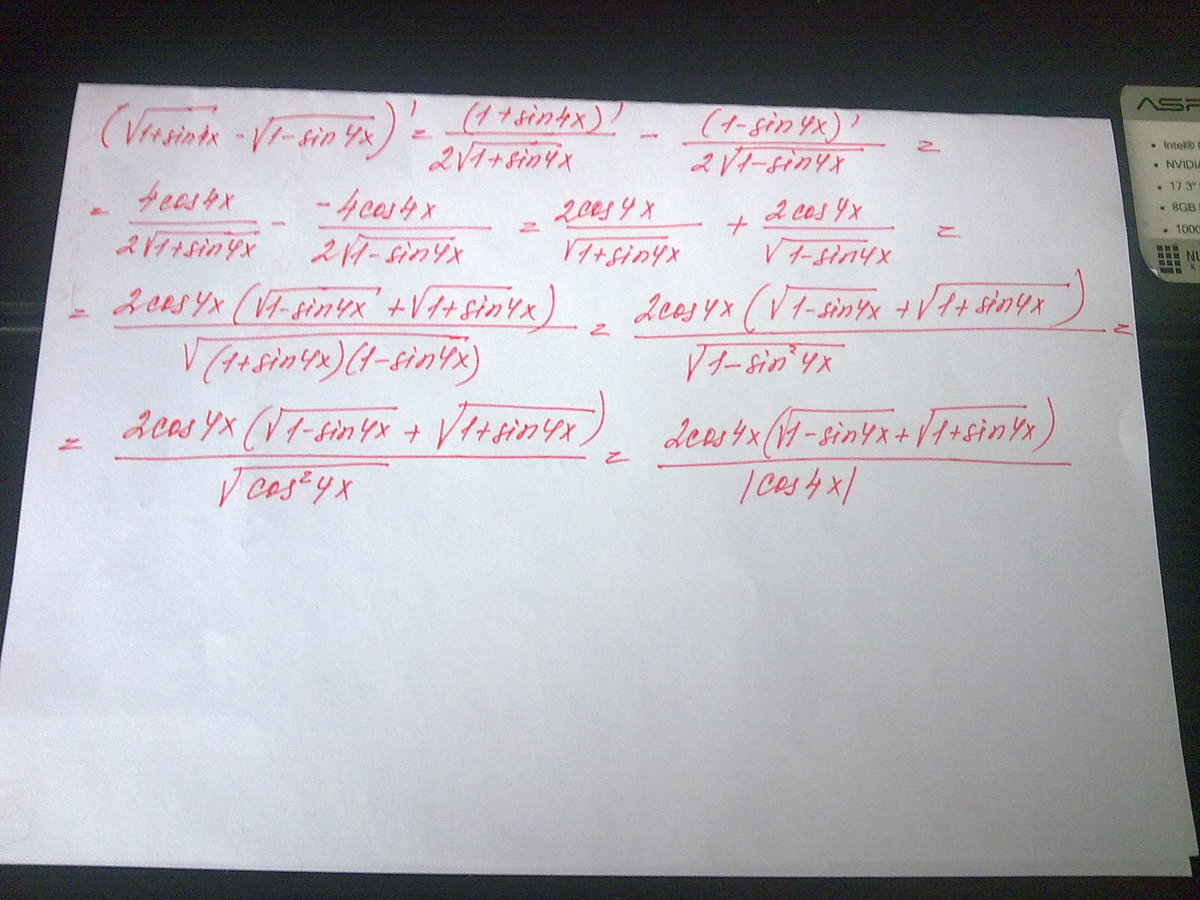 (√1+sin4x - √1-sin4x)' = (1+sin4x)' / 2√1+sin4x - (1-sin4x)' / 2√1-sin4x =
= 4cos4x / 2√1+sin4x - -4cos4x / 2√1-sin4x = 2cos4x / √1+sin4x + 2cos4x / √1-sin4x =
= 2cos4x(√1-sin4x + √1+sin4x) / √(1+sin4x)(1-sin4x) = 2cos4x(√1-sin4x + √1+sin4x) / √1-sin²4x =
= 2cos4x(√1-sin4x + √1+sin4x) / √cos²4x = 2cos4x(√1-sin4x + √1+sin4x) / |cos4x|
• Intel®
• NVIDIA
• 17.3"
• 8GB
• 1000